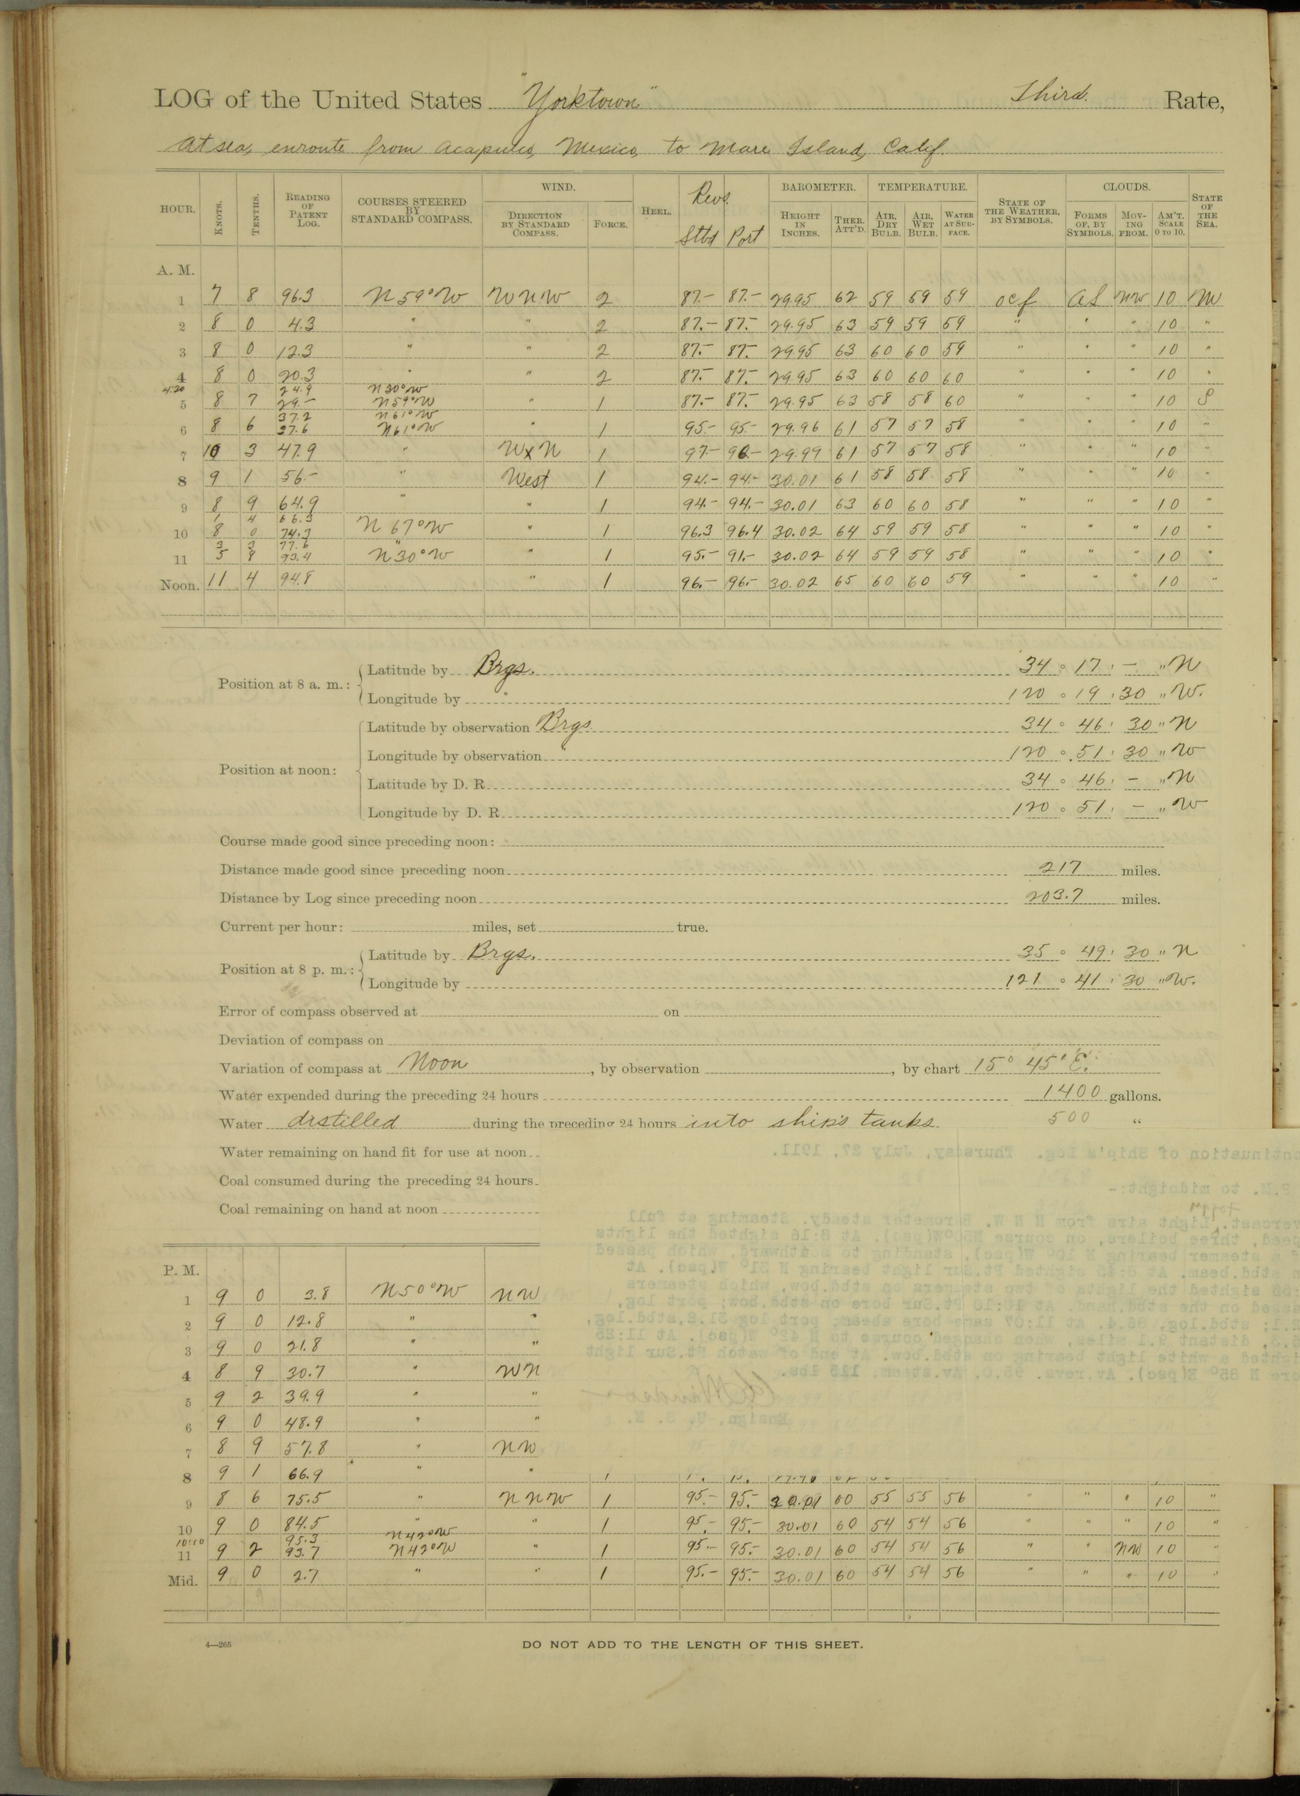 LOG of the United States "Yorktown" Third Rate,
At sea, enroute from Acapulco, Mexico, to Mare Island, Calif.
HOUR. KNOTS. TENTHS. READING OF PATENT LOG. COURSES STEERED BY STANDARD COMPASS. WIND. DIRECTION BY STANDARD COMPASS. FORCE. HEEL. Revs. Stbd Port BAROMETER. HEIGHT IN INCHES. THER. ATT'D. TEMPERATURE. AIR, DRY BULB. AIR, WET BULB. WATER AT SURFACE. STATE OF THE WEATHER, BY SYMBOLS. CLOUDS. FORMS OF, BY SYMBOLS. MOVING FROM. AM'T. SCALE 0 TO 10. STATE OF THE SEA.
A. M.
1 7 8 96.3 N 59° W WNW 2 87.- 87.- 29.95 62 59 59 59 ocf AS NW 10 M
2 8 0 4.3 " " 2 87.- 87.- 29.95 63 59 59 59 " " " 10 "
3 8 0 12.3 " " 2 87.- 87.- 29.95 63 60 60 59 " " " 10 "
4 8 0 20.3 " " 2 87.- 87.- 29.95 63 60 60 60 " " " 10 "
4:20 24.9 N30°W
5 8 7 29.- N59°W " 1 87.- 87.- 29.95 63 58 58 60 " " " 10 S
37.2 N61°W
6 8 6 37.6 N61°W " 1 95- 95- 29.96 61 57 57 58 " " " 10 "
7 10 3 47.9 " WxN 1 97- 96- 29.99 61 57 57 58 " " " 10 "
8 9 1 56.- " West 1 94.- 94.- 30.01 61 58 58 58 " " " 10 "
9 8 9 64.9 " " 1 94.- 94.- 30.01 63 60 60 58 " " " 10 "
1 4 66.3
10 8 0 74.3 N 67° W " 1 96.3 96.4 30.02 64 59 59 58 " " " 10 "
3 3 77.6 "
11 5 8 83.4 N 30° W " 1 95.- 91.- 30.02 64 59 59 58 " " " 10 "
Noon. 11 4 94.8 " 1 96.- 96.- 30.02 65 60 60 59 " " " 10 "
Position at 8 a. m.: Latitude by Brgs. 34 ° 17 ' - " N
Longitude by " 120 ° 19 ' 30 " W.
Position at noon: Latitude by observation Brgs. 34 ° 46 ' 30 " N
Longitude by observation " 120 ° 51 ' 30 " W
Latitude by D. R. 34 ° 46 ' - " N
Longitude by D. R. 120 ° 51 ' - " W
Course made good since preceding noon:
Distance made good since preceding noon 217 miles.
Distance by Log since preceding noon 203.7 miles.
Current per hour: miles, set true.
Position at 8 p. m.: Latitude by Brgs. 35 ° 49 ' 30 " N
Longitude by 121 ° 41 ' 30 " W.
Error of compass observed at on
Deviation of compass on
Variation of compass at Noon, by observation , by chart 15° 45' E.
Water expended during the preceding 24 hours 1400 gallons.
Water distilled during the preceding 24 hours into ship's tanks. 500 "
Water remaining on hand fit for use at noon
Coal consumed during the preceding 24 hours
Coal remaining on hand at noon
P. M.
1 9 0 3.8 N 50° W NW
2 9 0 12.8 " "
3 9 0 21.8 " "
4 8 9 30.7 " WN
5 9 2 39.9 " "
6 9 0 48.9 " "
7 8 9 57.8 " NW
8 9 1 66.9 " "
9 8 6 75.5 " NNW 1 95.- 95.- 30.01 60 55 55 56 " " " 10 "
10 9 0 84.5 " " 1 95.- 95.- 30.01 60 54 54 56 " " " 10 "
10:10 95.3 N42°W
11 9 2 93.7 N42°W " 1 95.- 95.- 30.01 60 54 54 56 " " NW 10 "
Mid. 9 0 2.7 " " 1 95.- 95.- 30.01 60 54 54 56 " " " 10 "
4—265 DO NOT ADD TO THE LENGTH OF THIS SHEET.